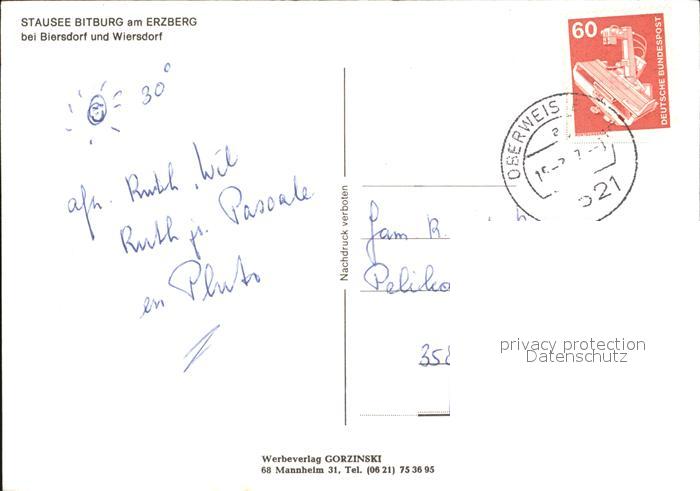 STAUSEE BITBURG am ERZBERG
bei Biersdorf und Wiersdorf
30°
afz. Ruth, Wil
Ruth jr. Pascale
en Pluto
Nachdruck verboten
60
DEUTSCHE BUNDESPOST
OBERWEIS
521
Fam R.
Peliko
358
privacy protection
Datenschutz
Werbeverlag GORZINSKI
68 Mannheim 31, Tel. (06 21) 75 36 95